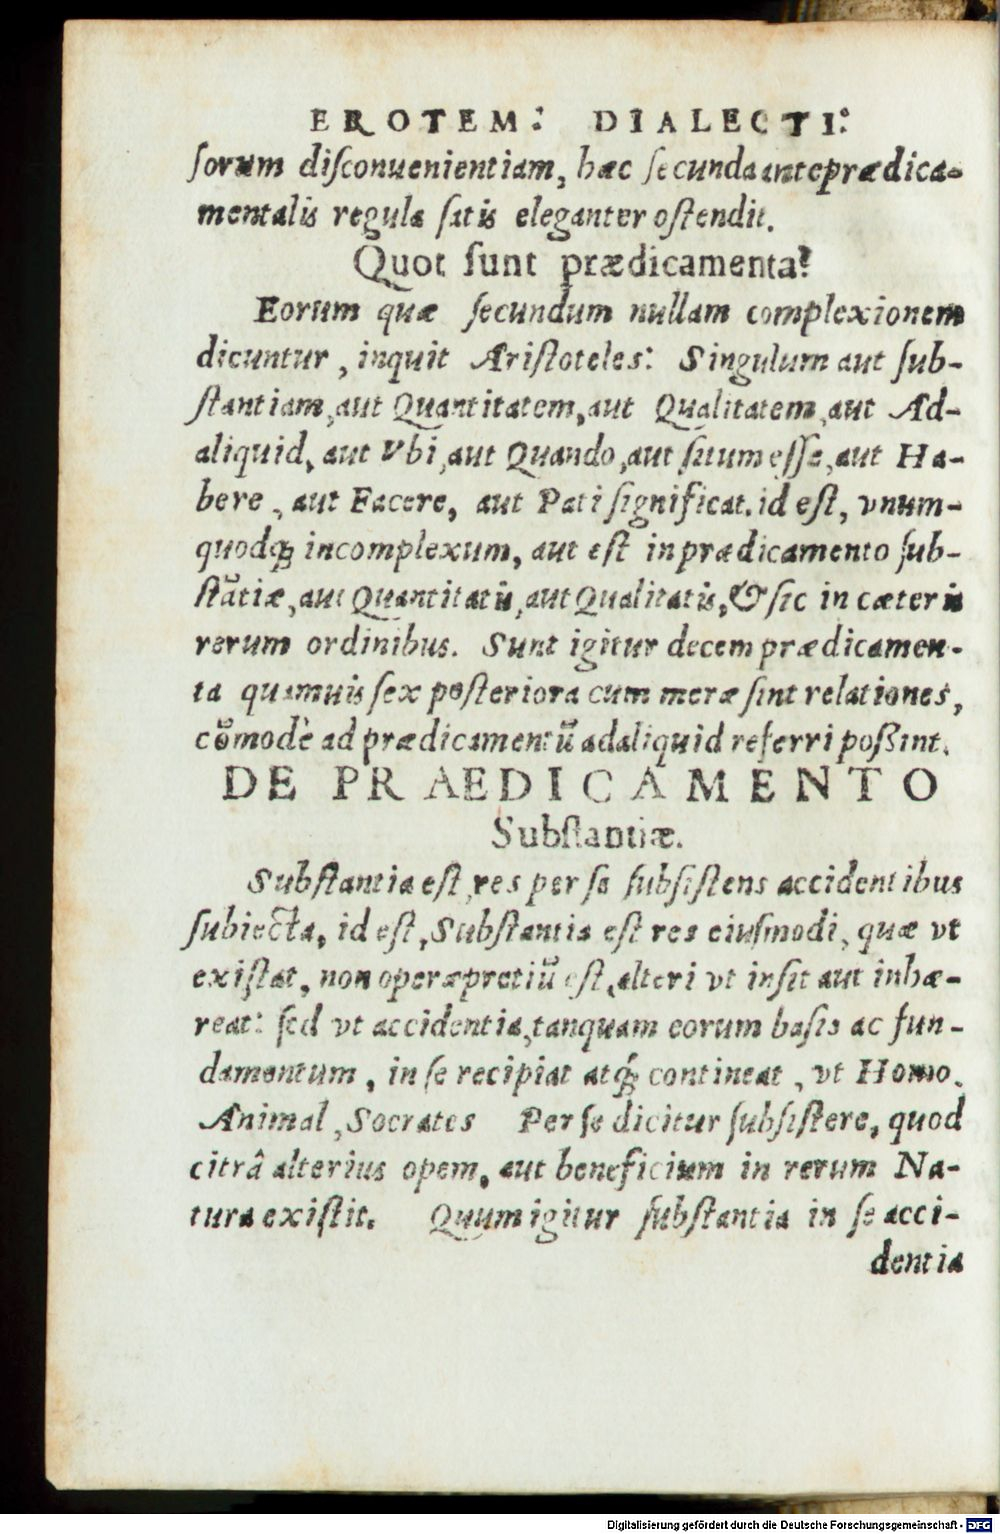 EROTEM: DIALECTI:
ſorum diſconuenientiam, hæc ſecunda anteprædica-
mentalis regula ſatis eleganter oſtendit.
Quot ſunt prædicamenta?
Eorum quæ ſecundum nullam complexionem
dicuntur, inquit Ariſtoteles: Singulum aut ſub-
ſtantiam, aut Quantitatem, aut Qualitatem, aut Ad-
aliquid, aut Vbi, aut Quando, aut ſitum eſſe, aut Ha-
bere, aut Facere, aut Pati ſignificat. id eſt, vnum-
quodq́ꝫ incomplexum, aut eſt in prædicamento ſub-
ſtãtiæ, aut Quantitatis, aut Qualitatis, & ſic in cæteris
rerum ordinibus. Sunt igitur decem prædicamen-
ta quamuis ſex poſteriora cum meræ ſint relationes,
cõmodè ad prædicamentũ adaliquid referri poßint.
DE PRAEDICAMENTO
Subſtantiæ.
Subſtantia eſt, res per ſe ſubſiſtens accidentibus
ſubiecta, id eſt, Subſtantia eſt res eiuſmodi, quæ vt
exiſtat, non operæpretiũ eſt, alteri vt inſit aut inhæ-
reat: ſed vt accidentia, tanquam eorum baſis ac fun-
damentum, in ſe recipiat atq́ꝫ contineat, vt Homo.
Animal, Socrates Per ſe dicitur ſubſiſtere, quod
citrâ alterius opem, aut beneficium in rerum Na-
tura exiſtit. Quum igitur ſubſtantia in ſe acci-
dentia
Digitalisierung gefördert durch die Deutsche Forschungsgemeinschaft - DFG